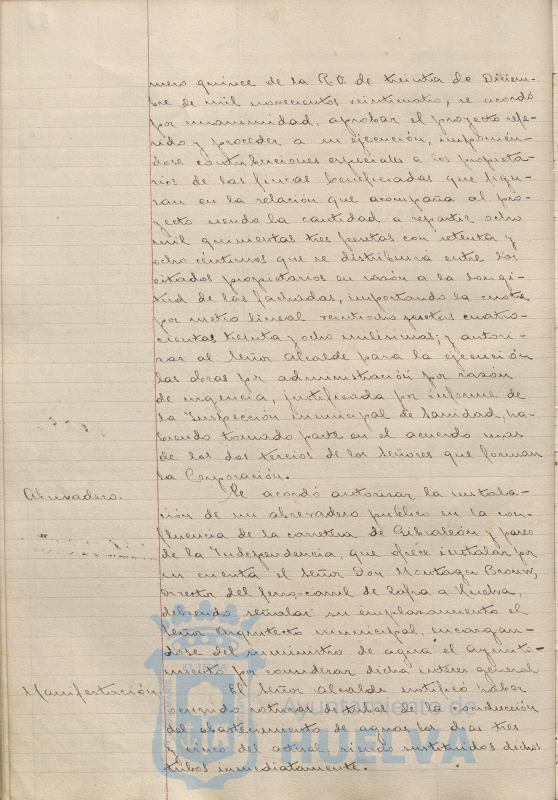 mero quince de la R.O. de treinta de Diciem-
bre de mil novecientos veinticuatro, se acordó
por unanimidad, aprobar el proyecto refe-
rido y proceder a su ejecución, imponién-
dose contribuciones especiales a los propieta-
rios de las fincas beneficiadas que figu-
ran en la relación que acompaña al pro-
yecto siendo la cantidad a repartir ocho
mil quinientas tres pesetas con setenta y
ocho céntimos que se distribuira entre los
citados propietarios en razón a la longi-
tud de las fachadas, importando la cuota
por metro lineal veintiocho pesetas cuatro-
cientas treinta y ocho milésimas; y autori-
zar al Señor Alcalde para la ejecución
las obras por administración por razón
de urgencia, justificada por informe de
la Inspección municipal de Sanidad, ha-
biendo tomado parte en el acuerdo mas
de los dos tercios de los Señores que forman
la Corporación.
Abrevadero. Se acordó autorizar la instala-
ción de un abrevadero público en la con-
fluencia de la carretera de Gibraleón y paseo
de la Independencia, que ofrece instalar por
su cuenta el Señor Don Montagu Brown,
Director del ferro-carril de Zafra a Huelva,
debiendo señalar su emplazamiento el
Señor Arquitecto municipal, encargan-
dose del suministro de agua el Ayunta-
miento por considerar dicho interes general
Manifestación. El Señor Alcalde notificó haber
ocurrido roturas de tubos de la conducción
del abastecimiento de aguas los dias tres
y cinco del actual, siendo sustituidos dichos
tubos inmediatamente.
Ayuntamiento de
HUELVA